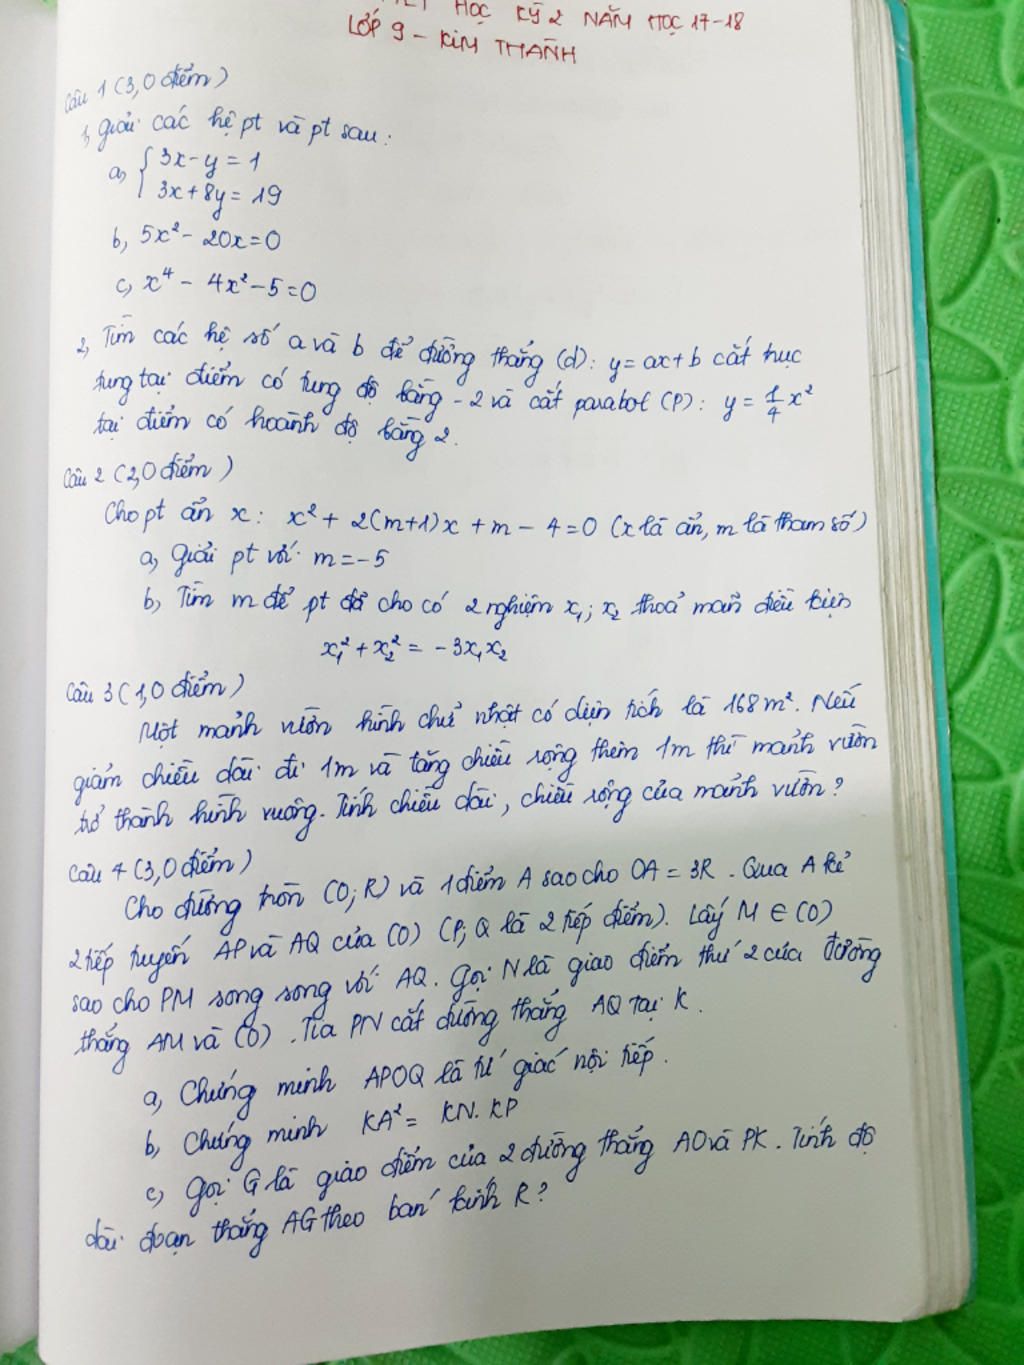 HỌC KỲ 2 NĂM HỌC 17-18
LỚP 9 - KIM THÀNH
Câu 1 (3,0 điểm)
1, Giải các hệ pt và pt sau:
a, { 3x - y = 1
3x + 8y = 19
b, 5x² - 20x = 0
c, x⁴ - 4x² - 5 = 0
2, Tìm các hệ số a và b để đường thẳng (d): y = ax + b cắt trục
tung tại điểm có tung độ bằng -2 và cắt parabol (P): y = 1/4 x²
tại điểm có hoành độ bằng 2.
Câu 2 (2,0 điểm)
Cho pt ẩn x: x² + 2(m+1)x + m - 4 = 0 (x là ẩn, m là tham số)
a, Giải pt với m = -5
b, Tìm m để pt đã cho có 2 nghiệm x₁; x₂ thoả mãn điều kiện
x₁² + x₂² = -3x₁x₂
Câu 3 (1,0 điểm)
Một mảnh vườn hình chữ nhật có diện tích là 168 m². Nếu
giảm chiều dài đi 1m và tăng chiều rộng thêm 1m thì mảnh vườn
trở thành hình vuông. Tính chiều dài, chiều rộng của mảnh vườn?
Câu 4 (3,0 điểm)
Cho đường tròn (O; R) và 1 điểm A sao cho OA = 3R. Qua A kẻ
2 tiếp tuyến AP và AQ của (O) (P; Q là 2 tiếp điểm). Lấy M ∈ (O)
sao cho PM song song với AQ. Gọi N là giao điểm thứ 2 của đường
thẳng AM và (O). Tia PN cắt đường thẳng AQ tại K.
a, Chứng minh APOQ là tứ giác nội tiếp.
b, Chứng minh KA² = KN. KP
c, Gọi G là giao điểm của 2 đường thẳng AO và PK. Tính độ
dài đoạn thẳng AG theo bán kính R?